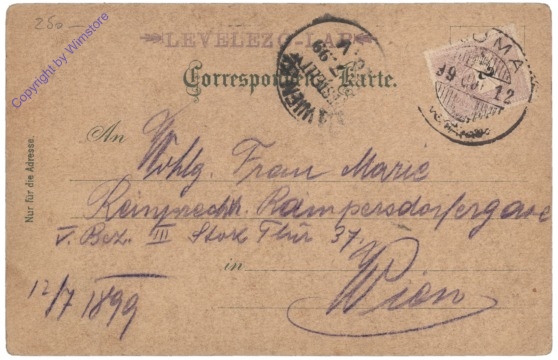 250.-
Copyright by Wimstore
LEVELEZŐ-LAP
Correspondenz-Karte.
WIEN
99
2
99
12
Nur für die Adresse.
An
Wohlg. Frau Marie
Reinprecht. Rampersdorfergasse
V. Bez. III Stok Thür 37.
in Wien
12/7 1899